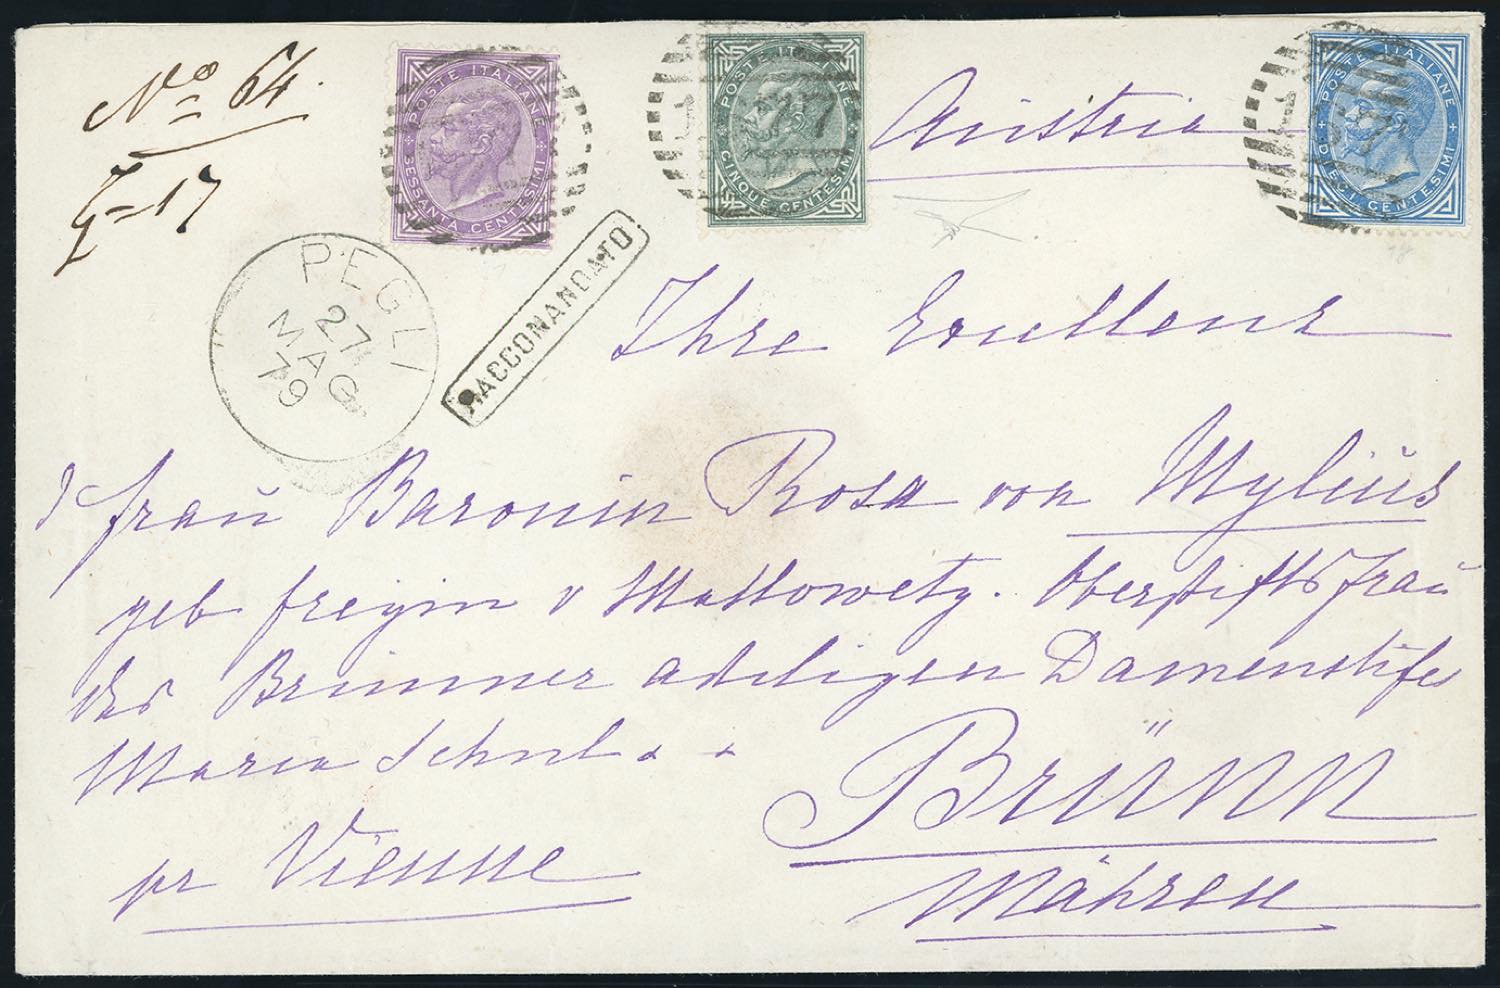 No 64.
17
POSTE ITALIANE
SESSANTA CENTESIMI
POSTE ITALIANE
CINQUE CENTESIMI
POSTE ITALIANE
DIECI CENTESIMI
Austria
PEGLI
27
MAG
79
RACCOMANDATO
Ihre Exullenz
Frau Baronin Rosa von Mylius
geb Freyin v Mattowetz. Oberstiftsfrau
des Brünner adeligen Damenstiftes
Maria Schul
pr Vienne
Brünn
Mähren